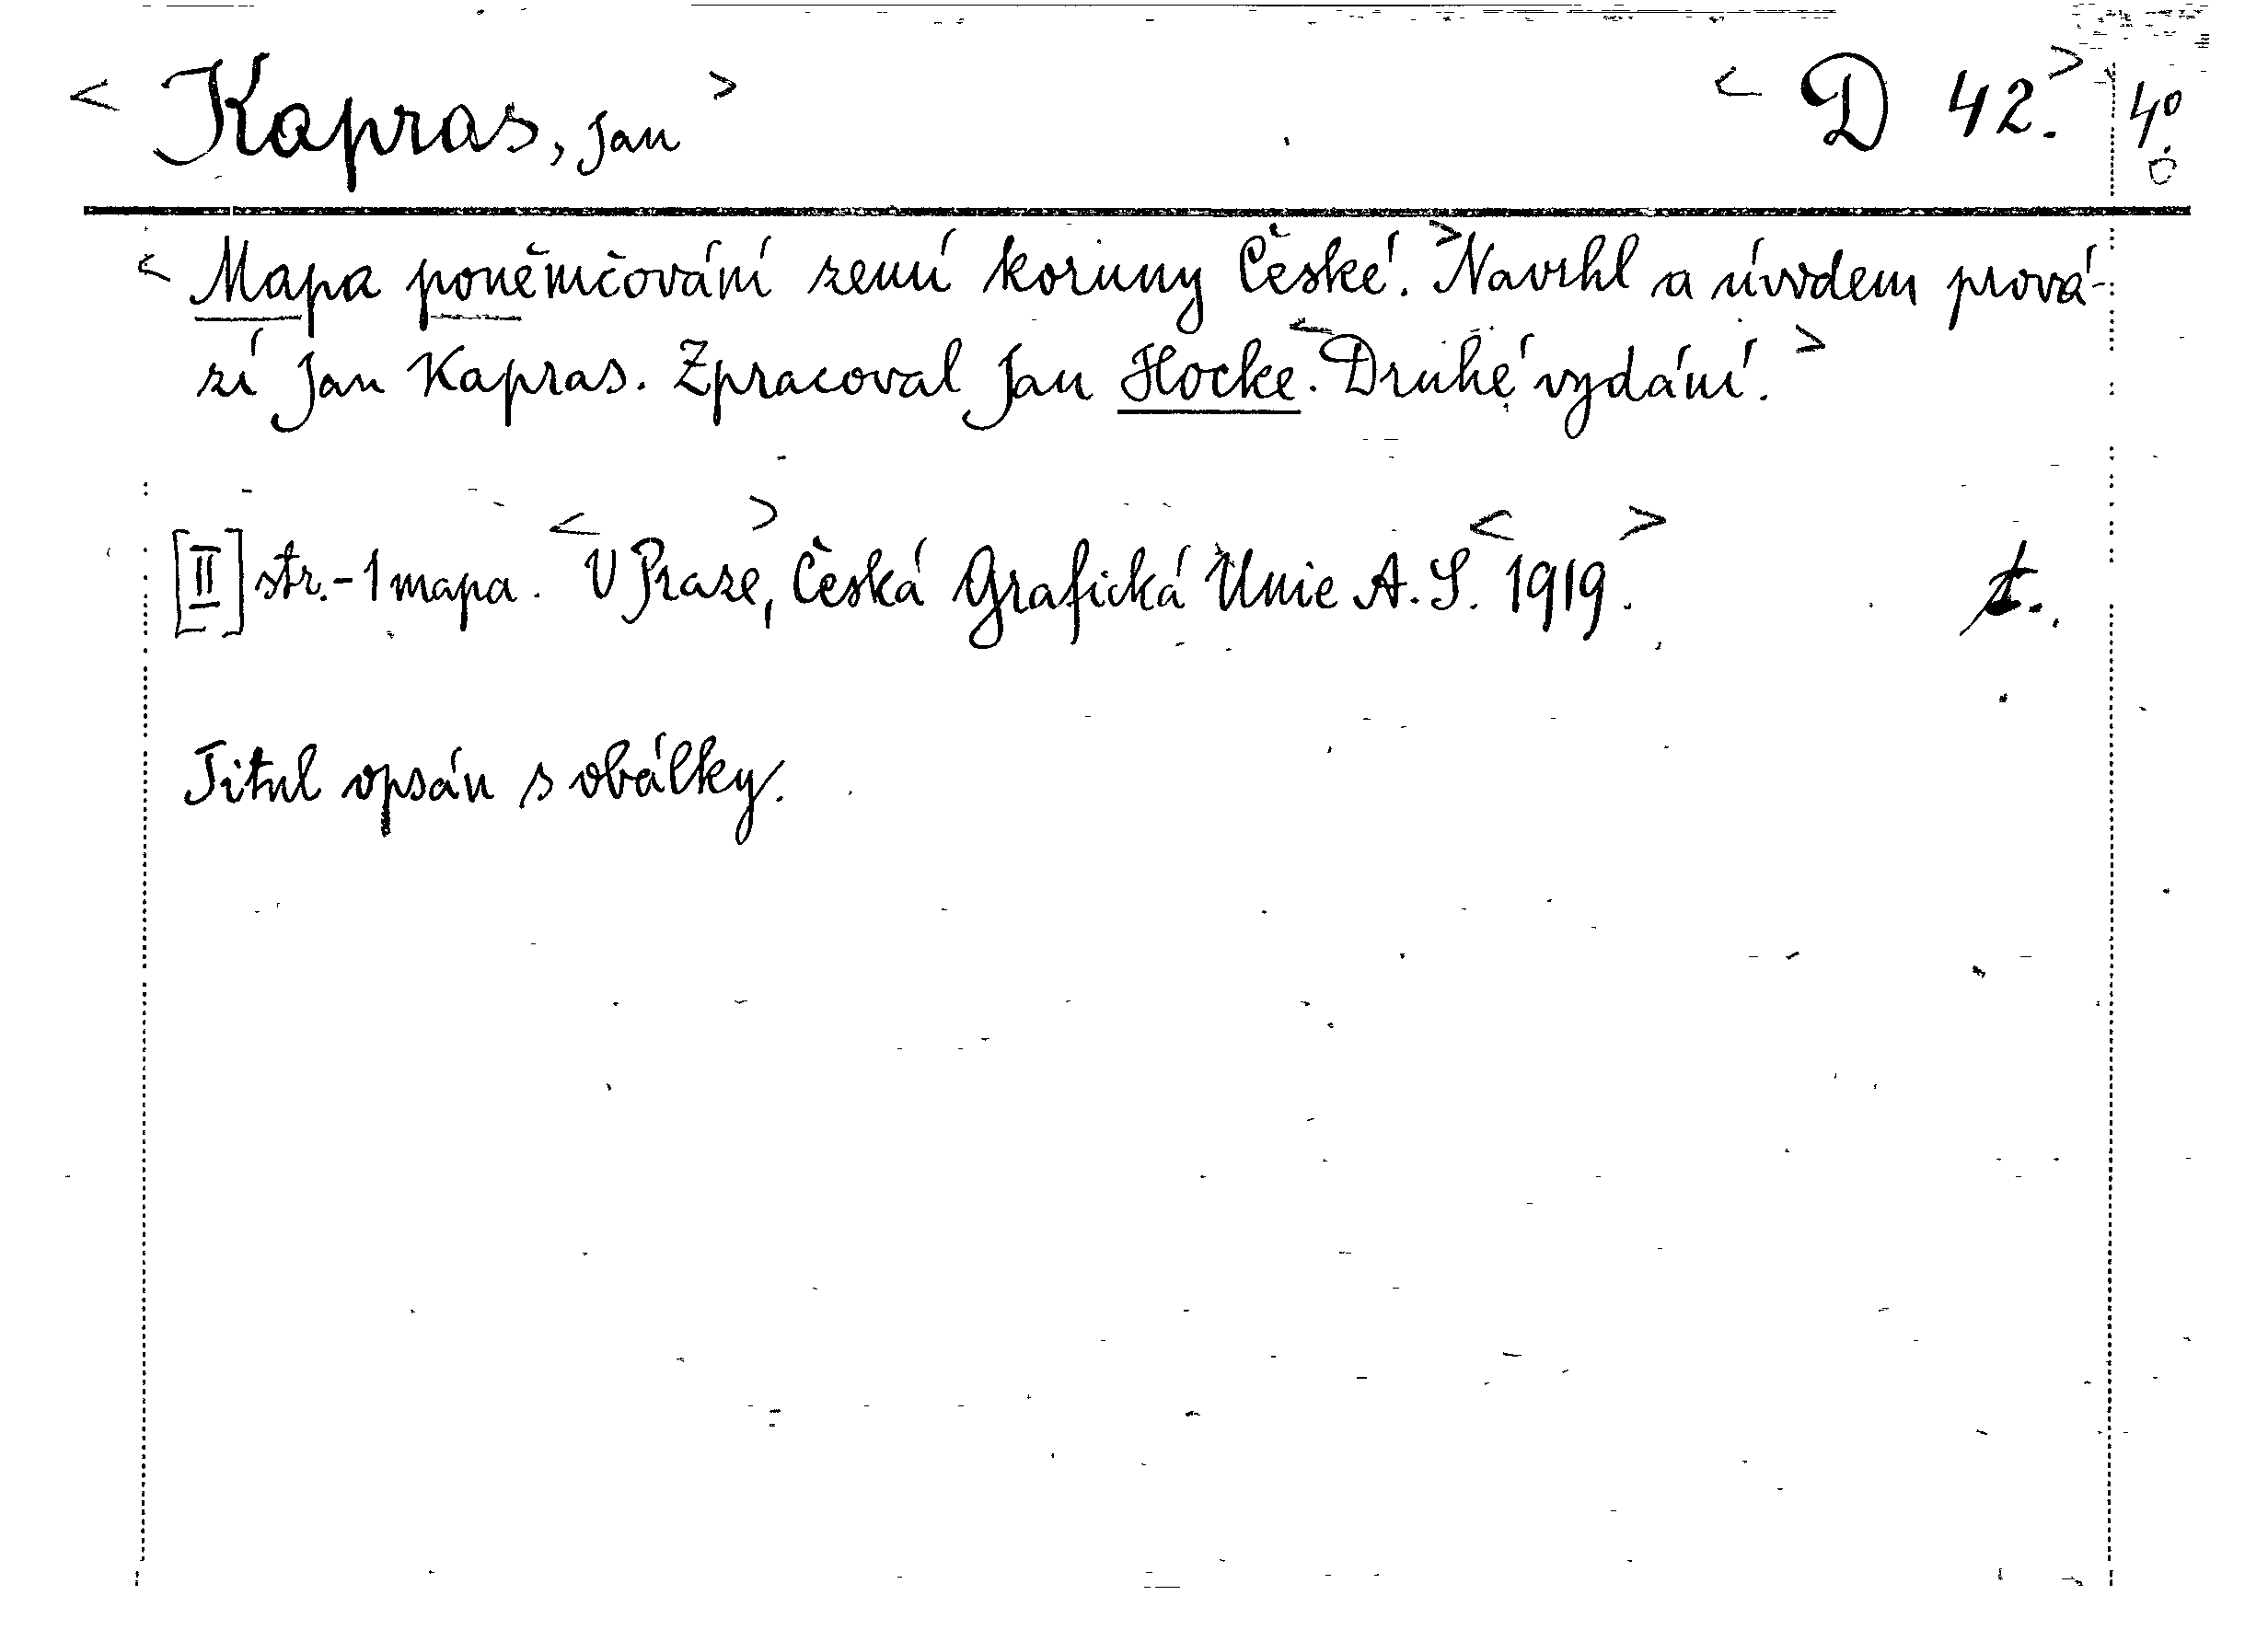 < Kapras, Jan > < D 42. > 4º
< Mapa poněmčování zemí koruny České. > Navrhl a úvodem prová-
zí Jan Kapras. Zpracoval Jan Hocke. < Druhé vydání. >
[II] str. - 1 mapa. < V Praze, > Česká Grafická Unie A. S. < 1919. >
Titul opsán s obálky.